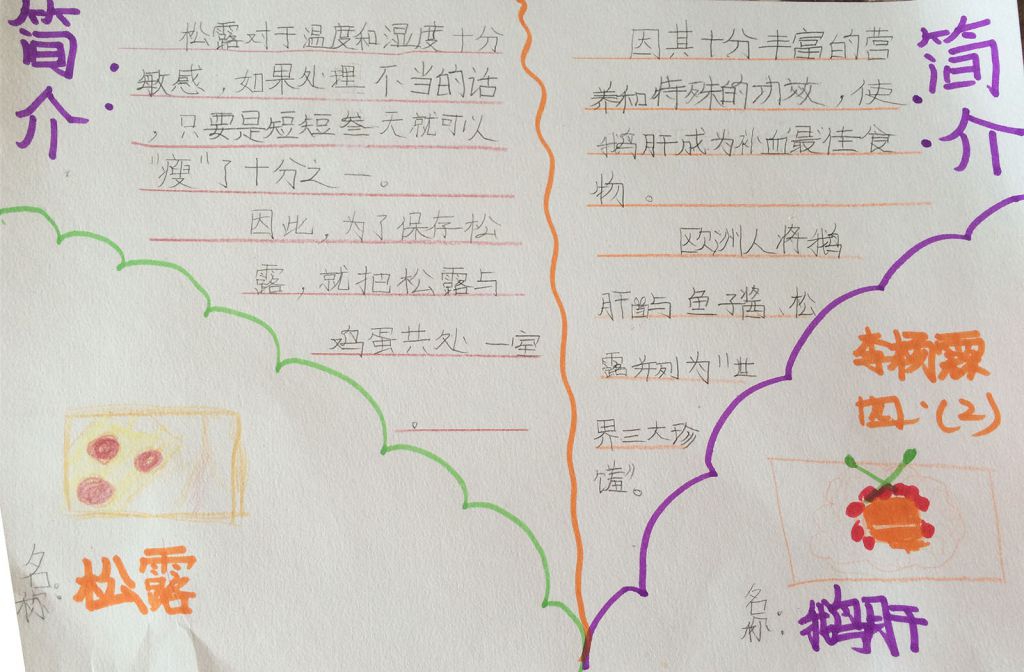 简介:
松露对于温度和湿度十分
敏感,如果处理不当的话
,只要是短短叁天就可以
"瘦"了十分之一。
因此,为了保存松
露,就把松露与
鸡蛋共处一室
。
名称:
松露
简介:
因其十分丰富的营
养和特殊的功效,使
鹅肝成为补血最佳食
物。
欧洲人将鹅
肝与鱼子酱、松
露并列为"世
界三大珍
馐"。
李杨霖
四.(2)
名称:
鹅肝